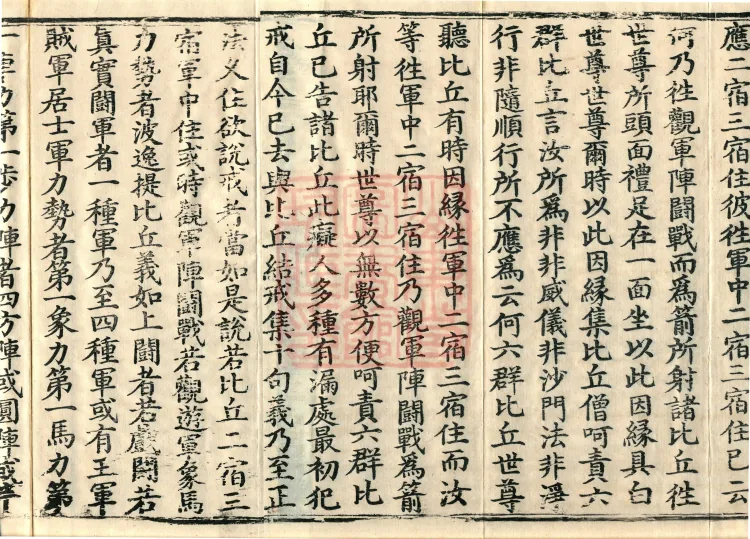 應二宿三宿住彼往軍中二宿三宿住已云
何乃往觀軍陣鬪戰而爲箭所射諸比丘往
世尊所頭面禮足在一面坐以此因緣具白
世尊世尊爾時以此因緣集比丘僧呵責六
群比丘言汝所爲非非威儀非沙門法非淨
行非隨順行所不應爲云何六群比丘世尊
聽比丘有時因緣往軍中二宿三宿住而汝
等往軍中二宿三宿住乃觀軍陣鬪戰爲箭
所射耶爾時世尊以無數方便呵責六群比
丘已告諸比丘此癡人多種有漏處最初犯
戒自今已去與比丘結戒集十句義乃至正
法久住欲說戒者當如是說若比丘二宿三
宿軍中住或時觀軍陣鬪戰若觀遊軍象馬
力勢者波逸提比丘義如上鬪者若戲鬪若
真實鬪軍者一種軍乃至四種軍或有王軍
賊軍居士軍力勢者第一象力第一馬力第
一車力第一步力陣者四方陣或圓陣或